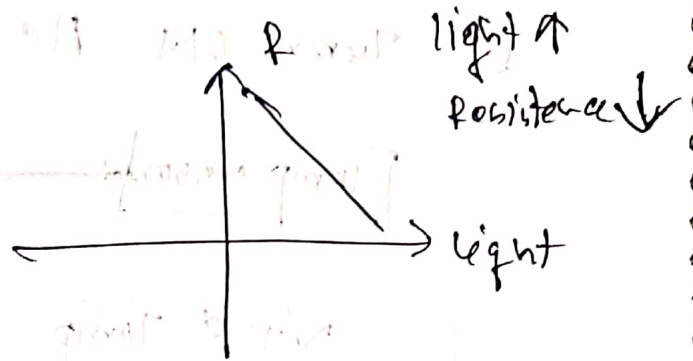 R
light ↑
Rosistence ↓
Light